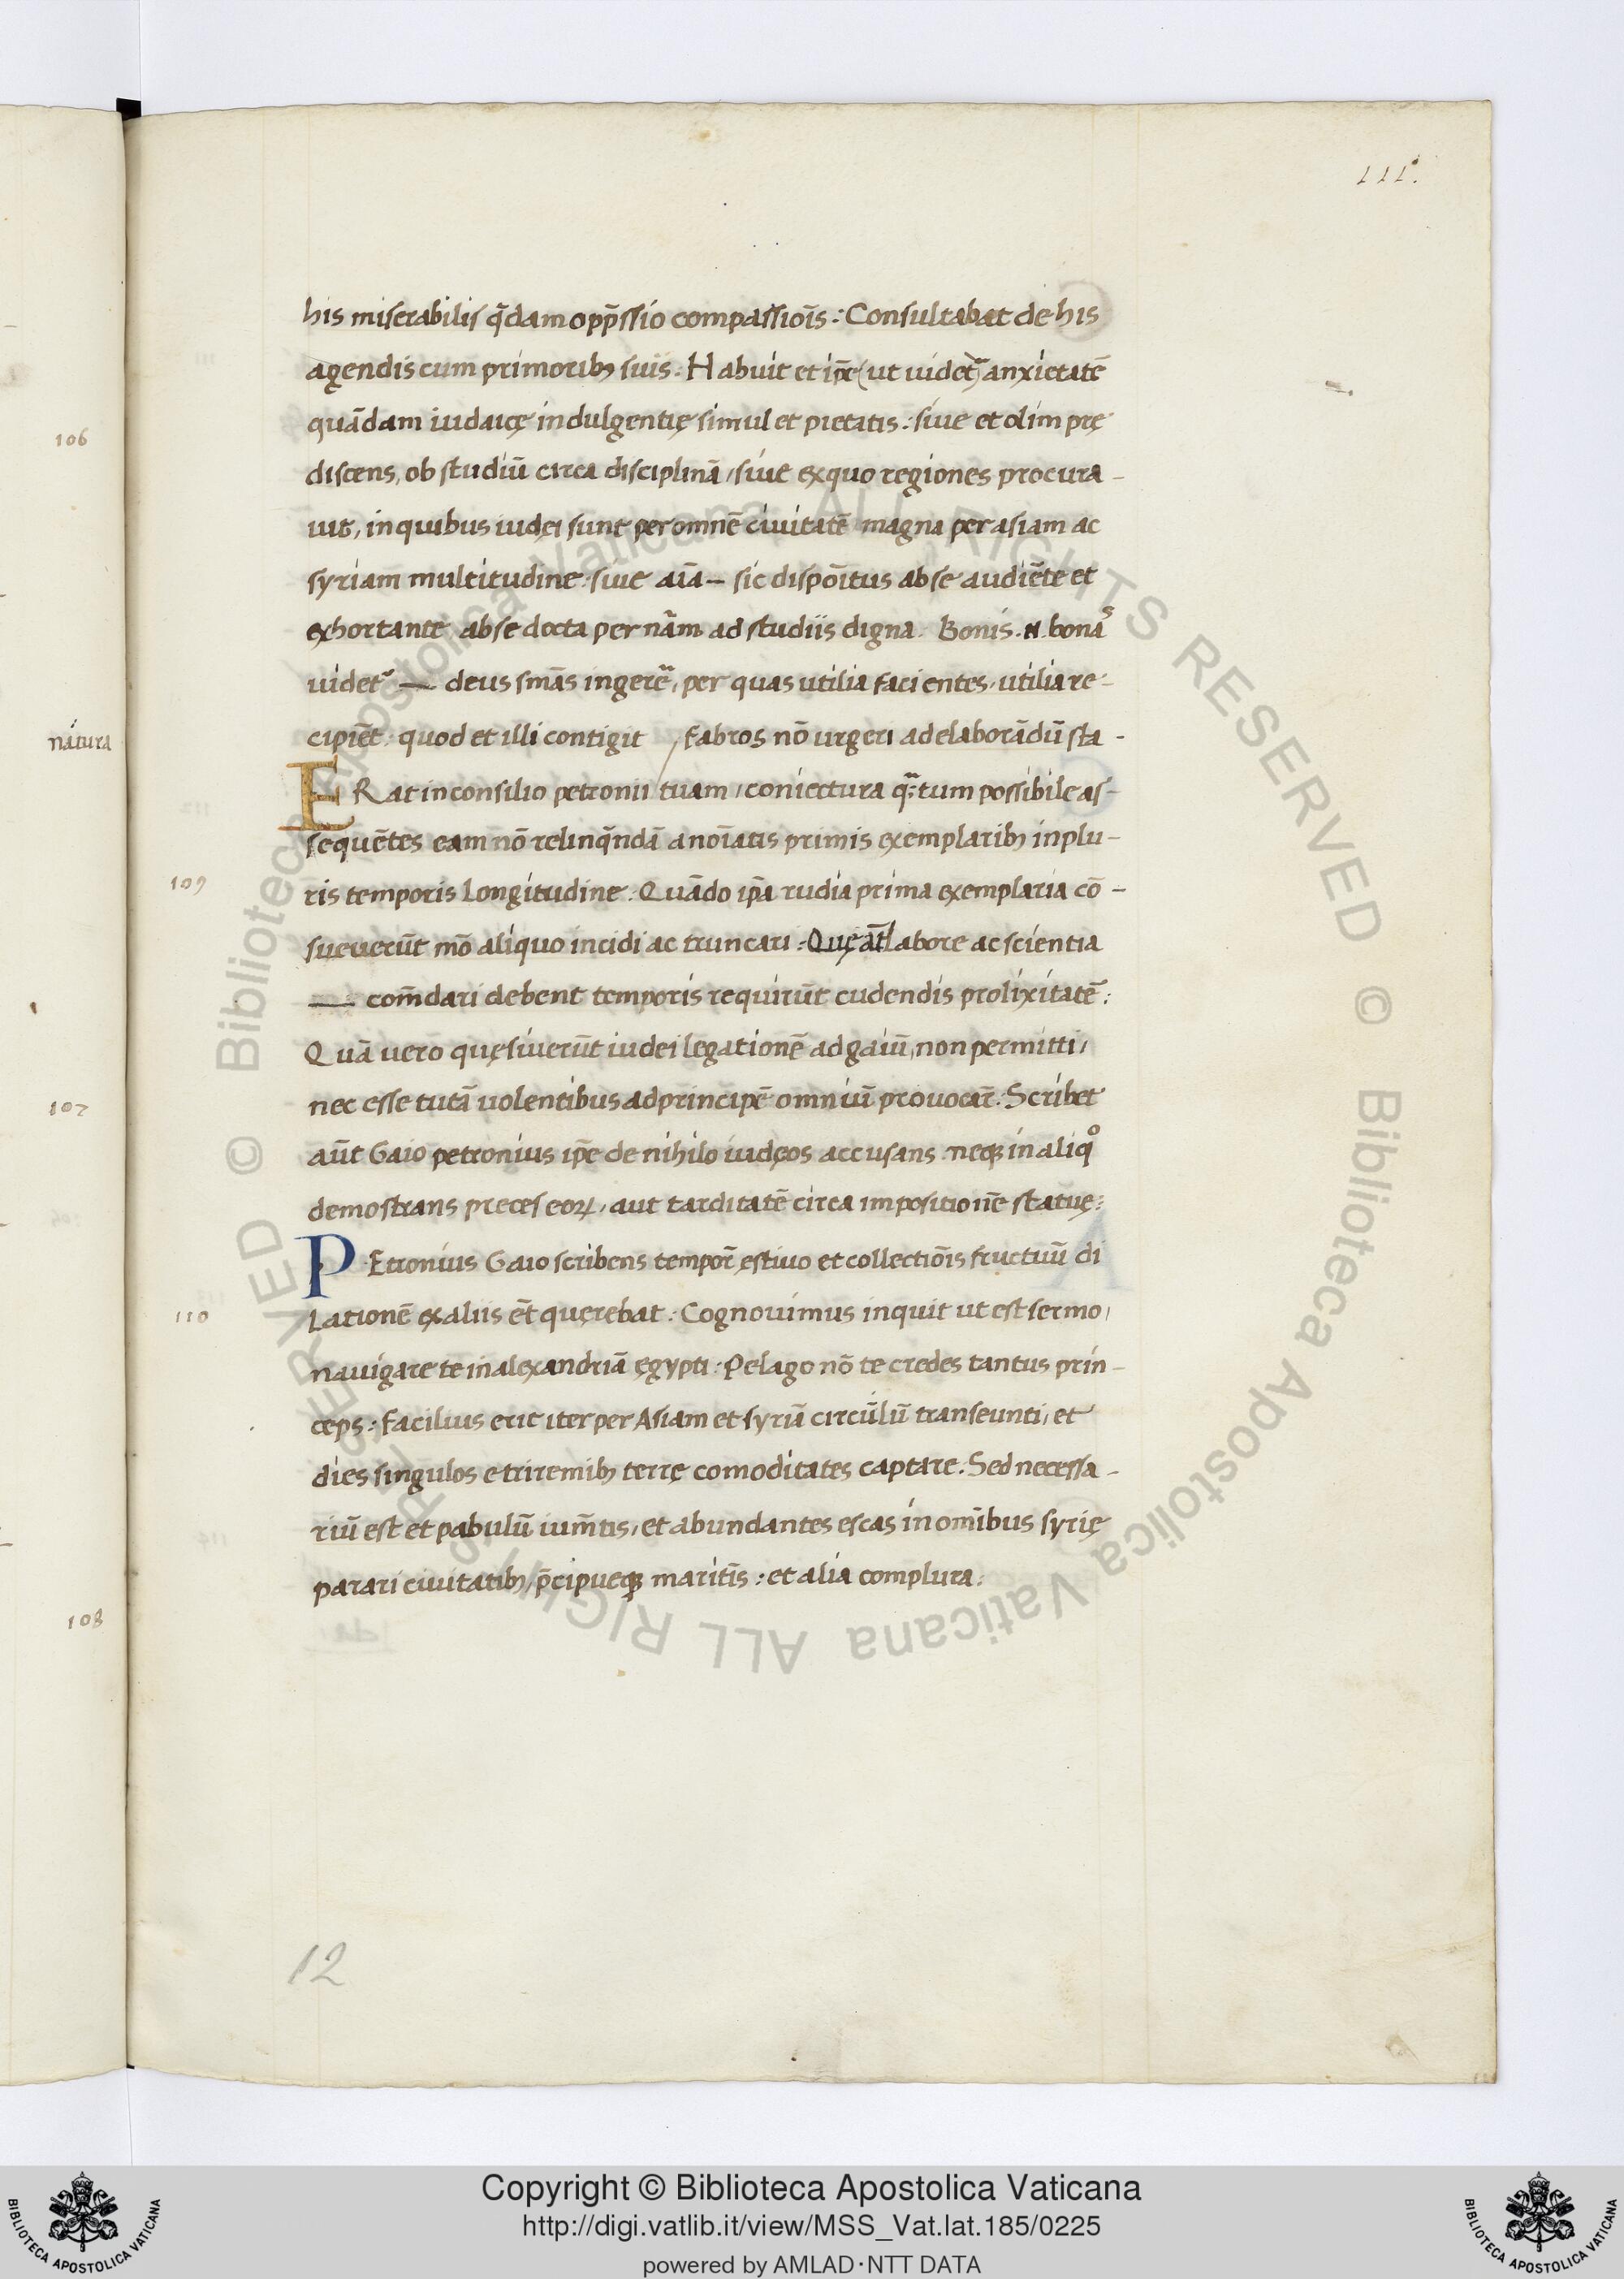 111.
his miserabilis q̄dam opp̄ssio compassiōis : Consultabat de his
agendis cum primorib; suis : Habuit et ip̄e (ut uidet᷑) anxietatē
quādam iudaicę indulgentię simul et pietatis : siue et olim prę
discens, ob studiū circa disciplinā, siue ex quo regiones procura-
uit, in quibus iudęi sunt per omnē ciuitatē magna per asiam ac
syriam multitudine : siue aīa — sic dispoītus ab se audiēte et
exhortante ab se docta per nām ad studiis digna. Bonis .N. bonas
uidet᷑ — deus smās ingerē, per quas utilia facientes, utilia re-
cipiēt : quod et illi contigit / fabros nō urgeri ad elaborādū sta-
ERat in consilio petronii / tuam, coniectura q̄tum possibile as-
sequētes eam nō relinq̄ndā a noīatis primis exemplarib; in plu-
ris temporis Longitudine : Quādo ip̄a rudia prima exemplaria cō-
sueuerūt mō aliquo incidi ac truncari : Quę āt labore ac scientia
— com̄dari debent temporis requirūt cudendis prolixitatē :
Quā vero quęsiuerūt iudei legationē ad gaiū, non permitti,
nec esse tutā uolentibus ad principē omniū prouocar̄ : Scribet
aūt Gaio petronius ip̄e de nihilo iudęos accusans neq; in aliqͦ
demostrans preces eoꝝ, aut tarditatē circa impositionē statuę :
PEtronius Gaio scribens tempor̄ ęstiuo et collectiōis fructuū di
Lationē ex aliis ēt quęrebat : Cognouimus inquit ut est sermo,
nauigare te in alexandriā ęgypti : Pelago nō te credes tantus prin-
ceps : facilius erit iter per Asiam et syriā circūlū transeunti, et
dies singulos e triremib; terrę comoditates captare. Sed necessa-
riū est et pabulū ium̄tis, et abundantes escas in om̄ibus syrię
parari ciuitatib; p̄cipueq; maritīs : et alia complura :
109
110
106
natura
107
108
12
© Biblioteca Apostolica Vaticana ALL RIGHTS RESERVED © Biblioteca Apostolica Vaticana ALL RIGHTS RESERVED
Copyright © Biblioteca Apostolica Vaticana
http://digi.vatlib.it/view/MSS_Vat.lat.185/0225
powered by AMLAD·NTT DATA
BIBLIOTECA APOSTOLICA VATICANA
BIBLIOTECA APOSTOLICA VATICANA